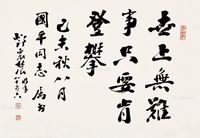 世上無難
事只要肯
登攀
己未秋八月
國平同志屬書